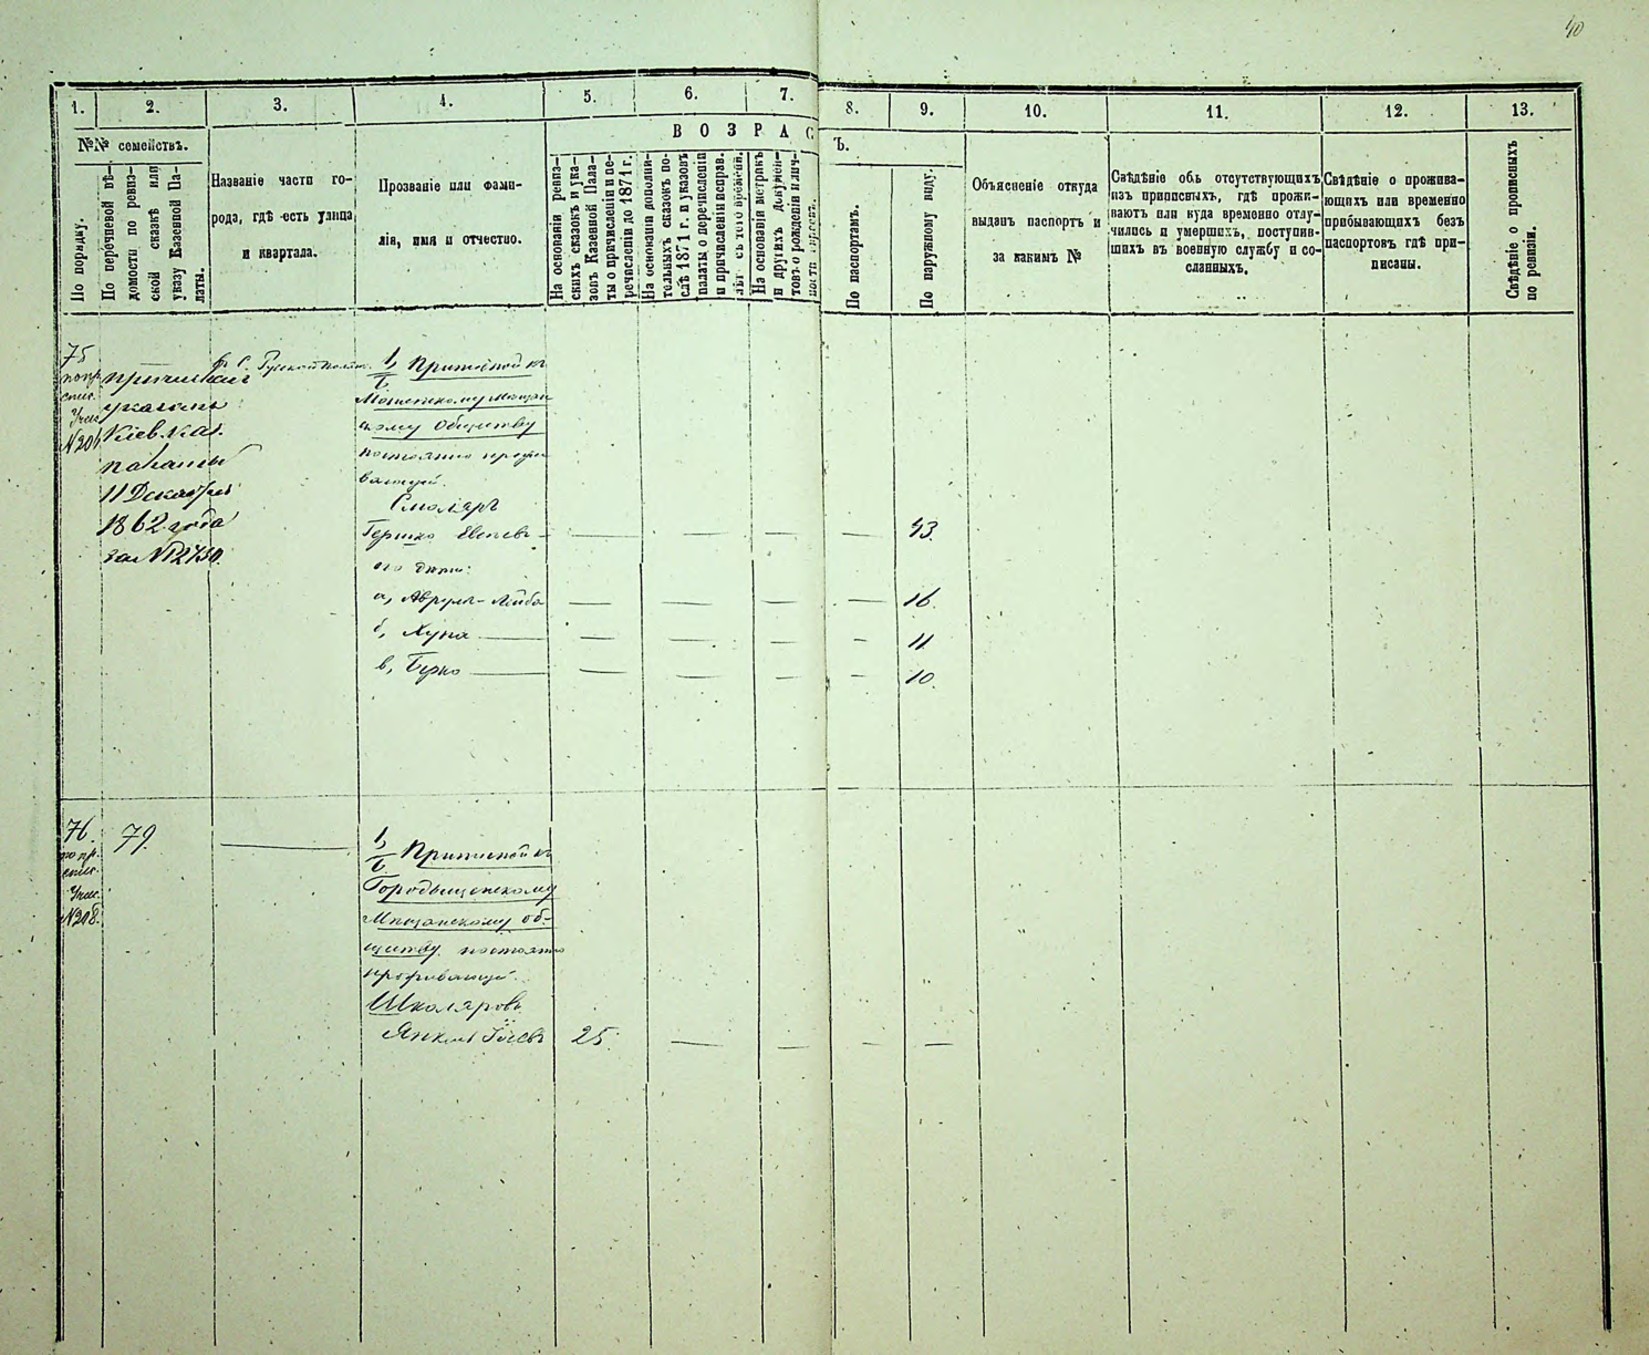 40
1.
2.
3.
4.
5.
6.
7.
8.
9.
10.
11.
12.
13.
№№ семействъ.
По порядку.
По перечневой вѣ-
домости по ревиз-
ской сказкѣ или
указу Казенной Па-
латы.
Названіе части го-
рода, гдѣ есть улица
и квартала.
Прозваніе или фами-
лія, имя и отчество.
ВОЗРАС
Ъ.
На основаніи ревиз-
скихъ сказокъ и ука-
зовъ Казенной Пала-
ты о причисленіи и пе-
речисленіи до 1871 г.
На основаніи дополни-
тельныхъ сказокъ по-
слѣ 1871 г. и указовъ
палаты о перечисленіи
и причисленіи исправ.
лѣт съ того времени.
На основаніи метрикъ
и другихъ докумен-
товъ о рожденіи и лич-
ности евреевъ.
По паспортамъ.
По наружному виду.
Объясненіе откуда
выданъ паспортъ и
за какимъ №
Свѣдѣніе объ отсутствующихъ
изъ приписныхъ, гдѣ прожи-
ваютъ или куда временно отлу-
чились и умершихъ, поступив-
шихъ въ военную службу и со-
сланныхъ.
Свѣдѣніе о прожива-
ющихъ или временно
прибывающихъ безъ
паспортовъ гдѣ при-
писаны.
Свѣдѣніе о прописныхъ
по ревизіи.
75
по пр.
спис.
№ 206
причислен
указомъ
Киев. каз.
палаты
11 Декабря
1862 года
за №
1, Приписной къ
Мѣщан
скому Обществу
постоянно прожи
вающій.
Смоляръ
Гершко
его дѣти:
а, Аврумъ-Лейба
б, Хуна
в, Берко
43.
16.
11
10.
76.
по пр.
спис.
№ 208.
79.
1, Приписной къ
Городыщенскому
Мѣщанскому об-
ществу постоянно
проживающій.
Школяровъ
Янкель
25.